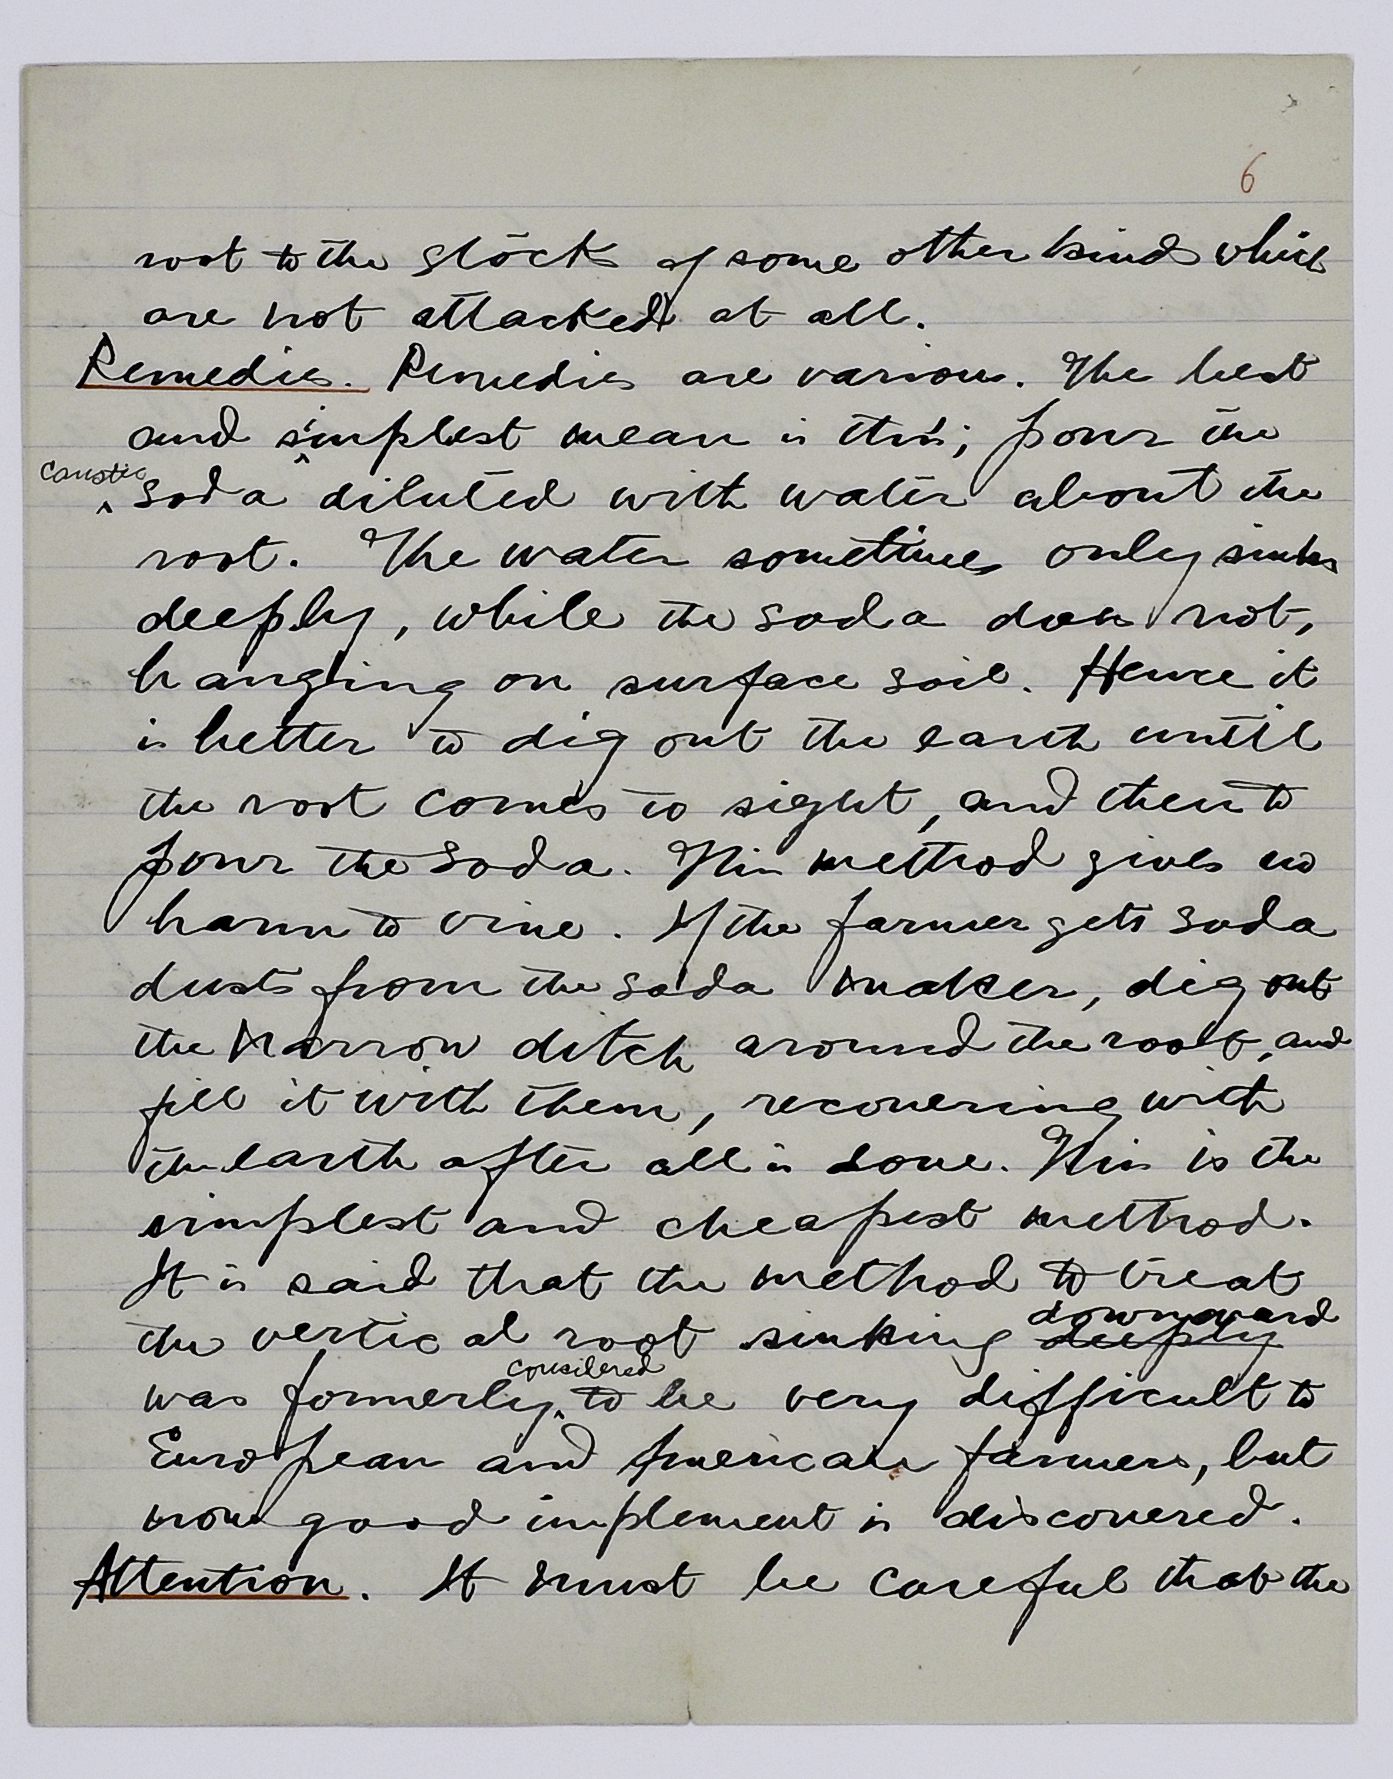 6
root to the stock of some other kinds which
are not attacked at all.
Remedies. Remedies are various. The best
and simplest mean is this; pour the
caustic soda diluted with water about the
root. The water sometimes only sinks
deeply, while the soda does not,
hanging on surface soil. Hence it
is better to dig out the earth until
the root comes to sight, and then to
pour the soda. This method gives no
harm to vine. If the farmer gets soda
dusts from the soda maker, dig out
the narrow ditch around the root, and
fill it with them, recovering with
the earth after all is done. This is the
simplest and cheapest method.
It is said that the method to treat
the vertical root sinking deeply downward
was formerly consilered to be very difficult to
European and American farmers, but
now good implement is discovered.
Attention. It must be careful that the